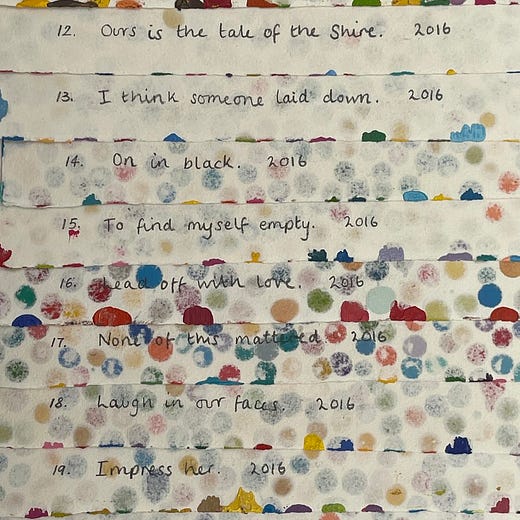 12. Ours is the tale of the Shire. 2016
13. I think someone laid down. 2016
14. On in black. 2016
15. To find myself empty. 2016
16. Lead off with love. 2016
17. None of this mattered 2016
18. Laugh in our faces. 2016
19. Impress her. 2016